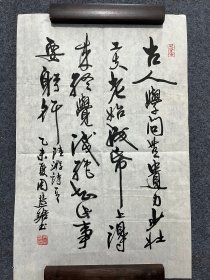 古人學問無遺力少壯
工夫老始成紙上得
來終覺淺絕知此事
要躬行 陸游詩
乙未夏周書